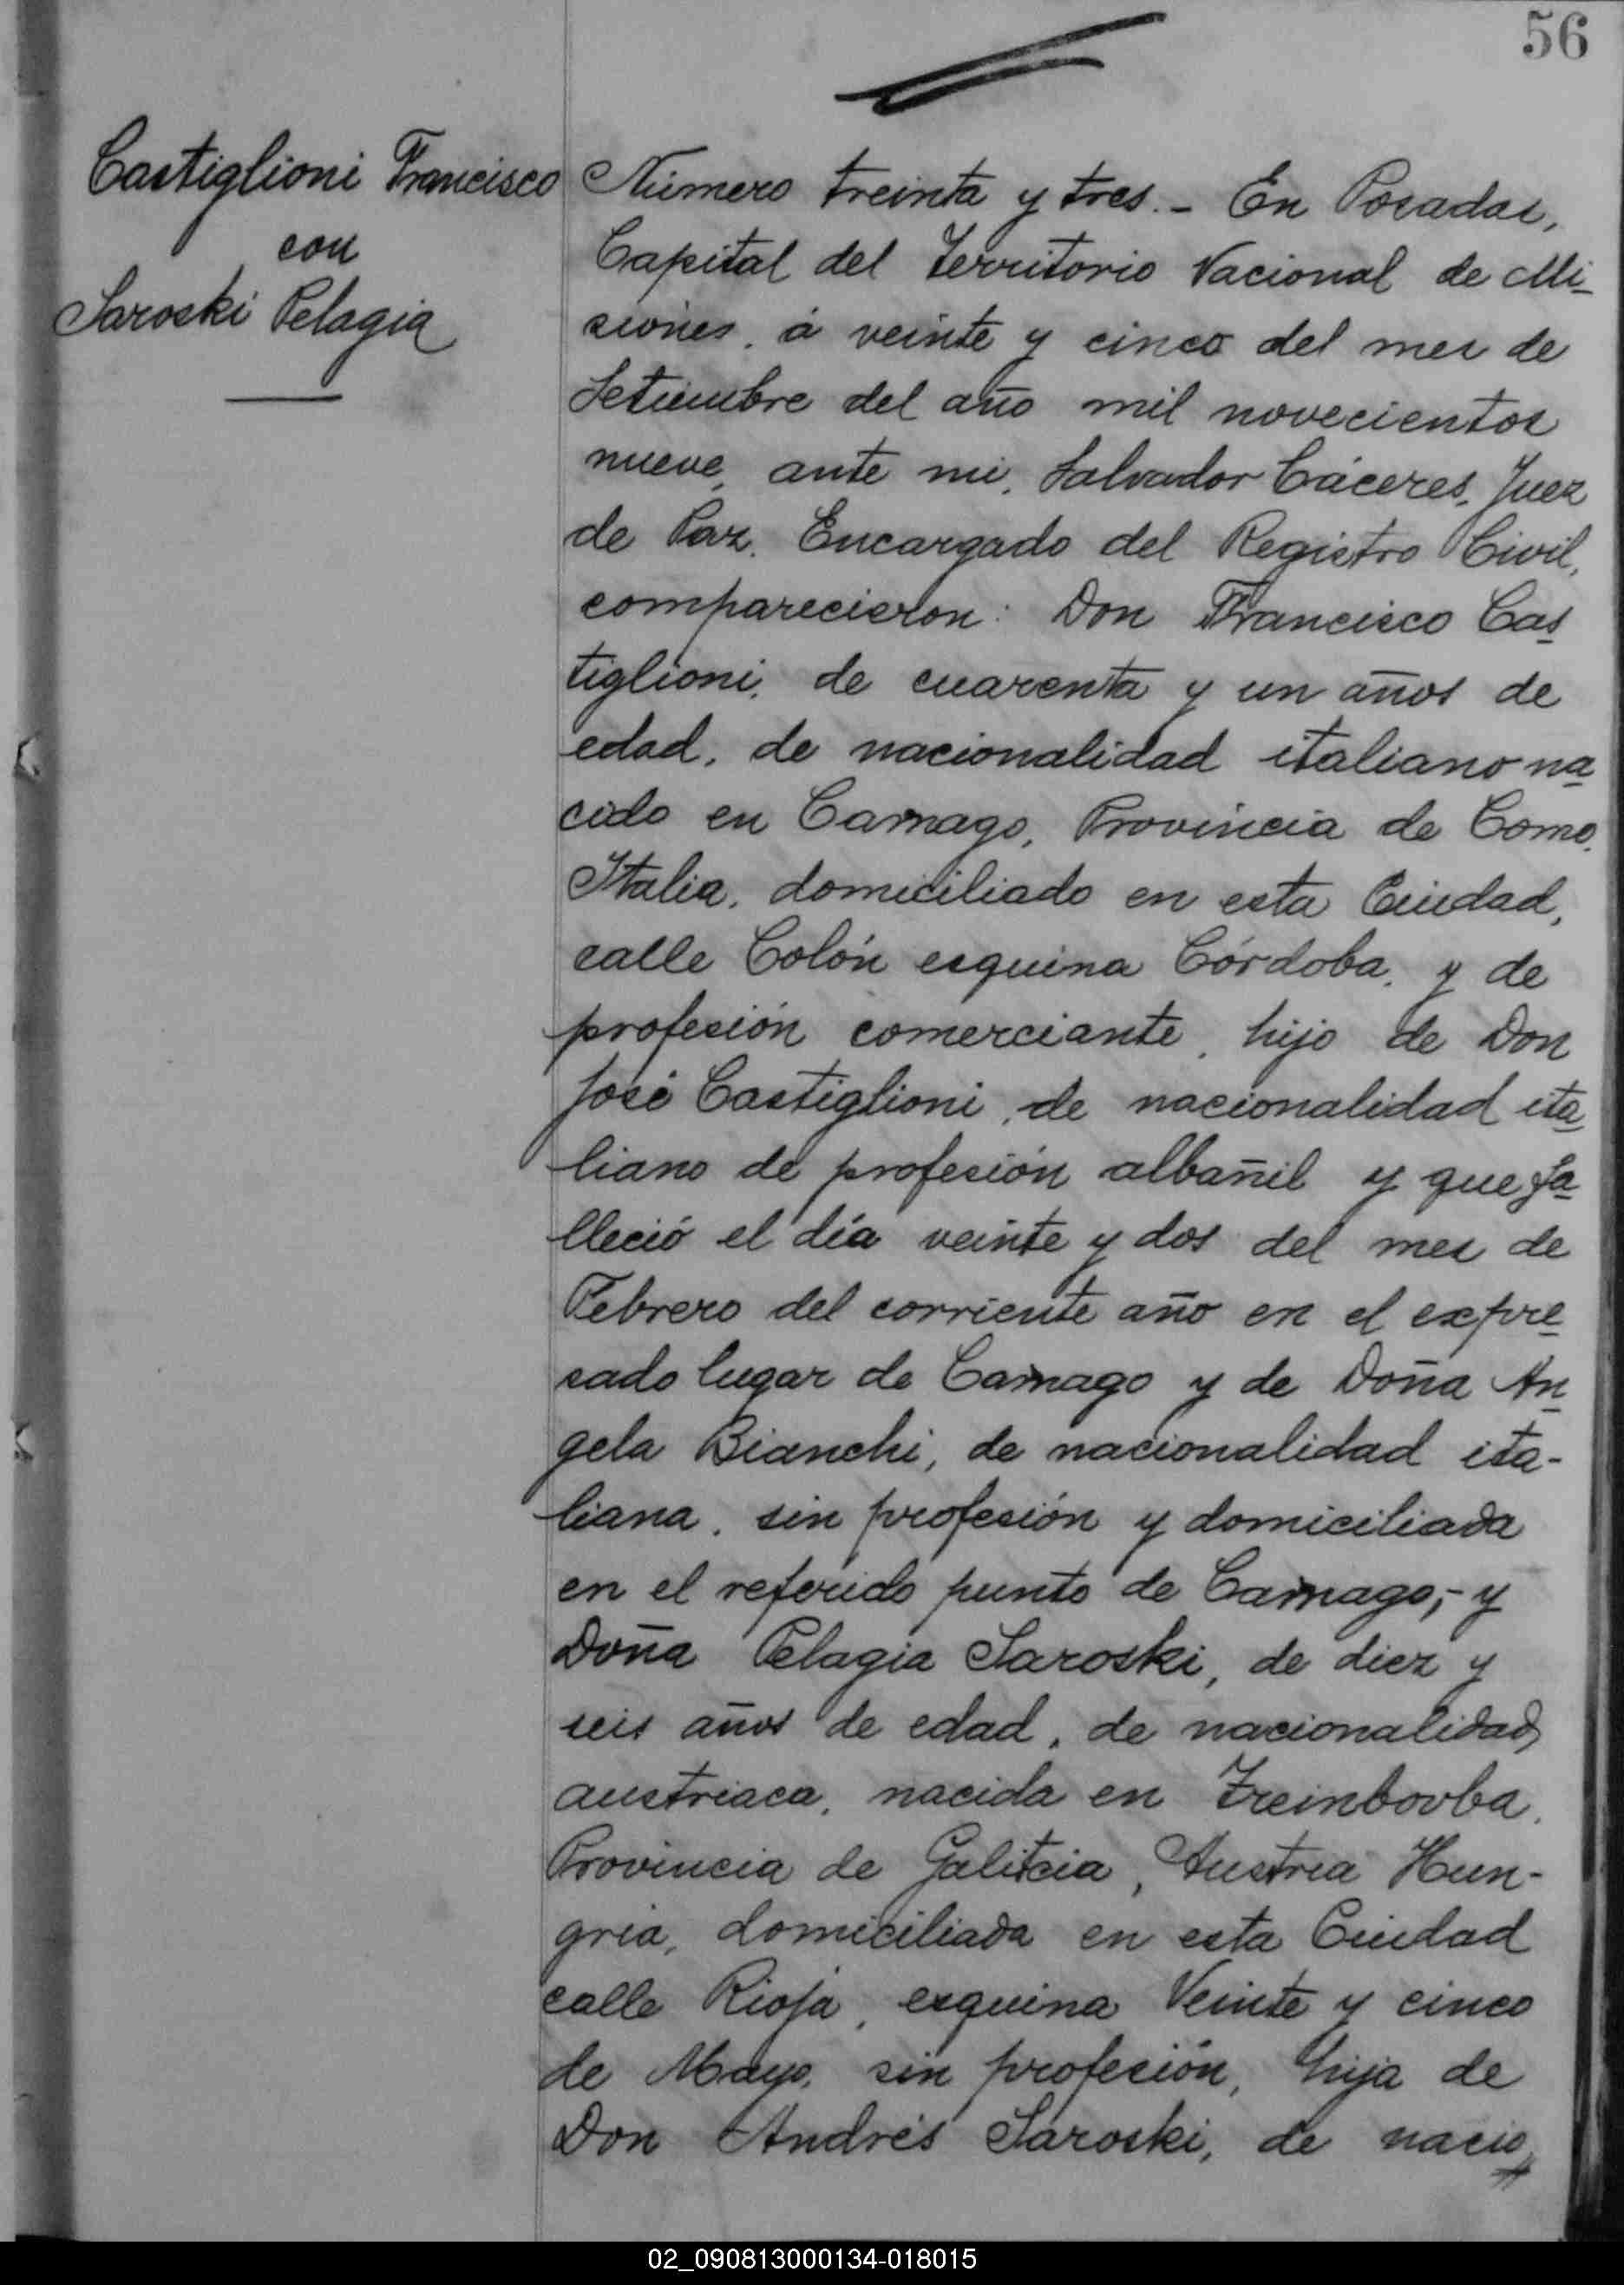 56
Castiglioni Francisco
con
Saroski Pelagia
Número treinta y tres.- En Posadas,
Capital del Territorio Nacional de Mi-
siones, á veinte y cinco del mes de
Setiembre del año mil novecientos
nueve, ante mi, Salvador Cáceres, Juez
de Paz, Encargado del Registro Civil,
comparecieron: Don Francisco Cas-
tiglioni, de cuarenta y un años de
edad, de nacionalidad italiano na-
cido en Carnago, Provincia de Como,
Italia, domiciliado en esta Ciudad,
calle Colón esquina Córdoba, y de
profesión comerciante, hijo de Don
José Castiglioni, de nacionalidad ita-
liano de profesión albañil y que fa-
lleció el día veinte y dos del mes de
Febrero del corriente año en el expre-
sado lugar de Carnago y de Doña An-
gela Bianchi, de nacionalidad ita-
liana, sin profesión y domiciliada
en el referido punto de Carnago;- y
Doña Pelagia Saroski, de diez y
seis años de edad, de nacionalidad
austriaca, nacida en Treinbovba,
Provincia de Galitcia, Austria Hun-
gria, domiciliada en esta Ciudad
calle Rioja, esquina Veinte y cinco
de Mayo, sin profesión, hija de
Don Andrés Saroski, de nacio
02_090813000134-018015